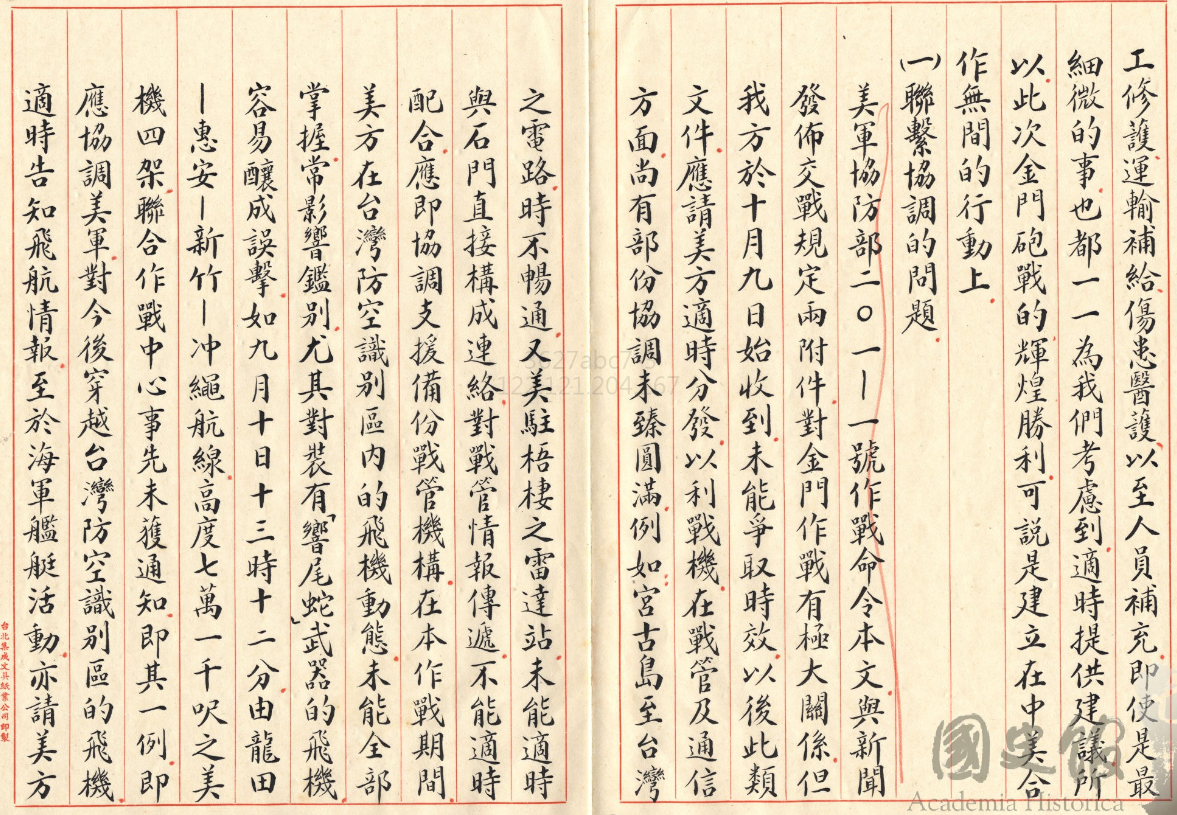 工修護運輸補給傷患醫護以至人員補充即使是最
細微的事也都一一為我們考慮到適時提供建議所
以此次金門砲戰的輝煌勝利可説是建立在中美合
作無間的行動上
(一)聯繫協調的問題
美軍協防部二〇一一一號作戰命令本文與新聞
發佈交戰規定兩附件對金門作戰有極大關係但
我方於十月九日始收到未能爭取時效以後此類
文件應請美方適時分發以利戰機在戰管及通信
方面尚有部份協調未臻圓滿例如宮古島至台灣
之電路時不暢通又美駐梧棲之雷達站未能適時
與石門直接構成連絡對戰管情報傳遞不能適時
配合應即協調支援備份戰管機構在本作戰期間
美方在台灣防空識別區內的飛機動態未能全部
掌握常影響鑑別尤其對裝有「響尾蛇」武器的飛機
容易釀成誤擊如九月十日十三時十二分由龍田
—惠安—新竹—冲繩航線高度七萬一千呎之美
機四架聯合作戰中心事先未獲通知即其一例即
應協調美軍對今後穿越台灣防空識別區的飛機
適時告知飛航情報至於海軍艦艇活動亦請美方
台北集成文具紙業公司印製
國史館
Academia Historica